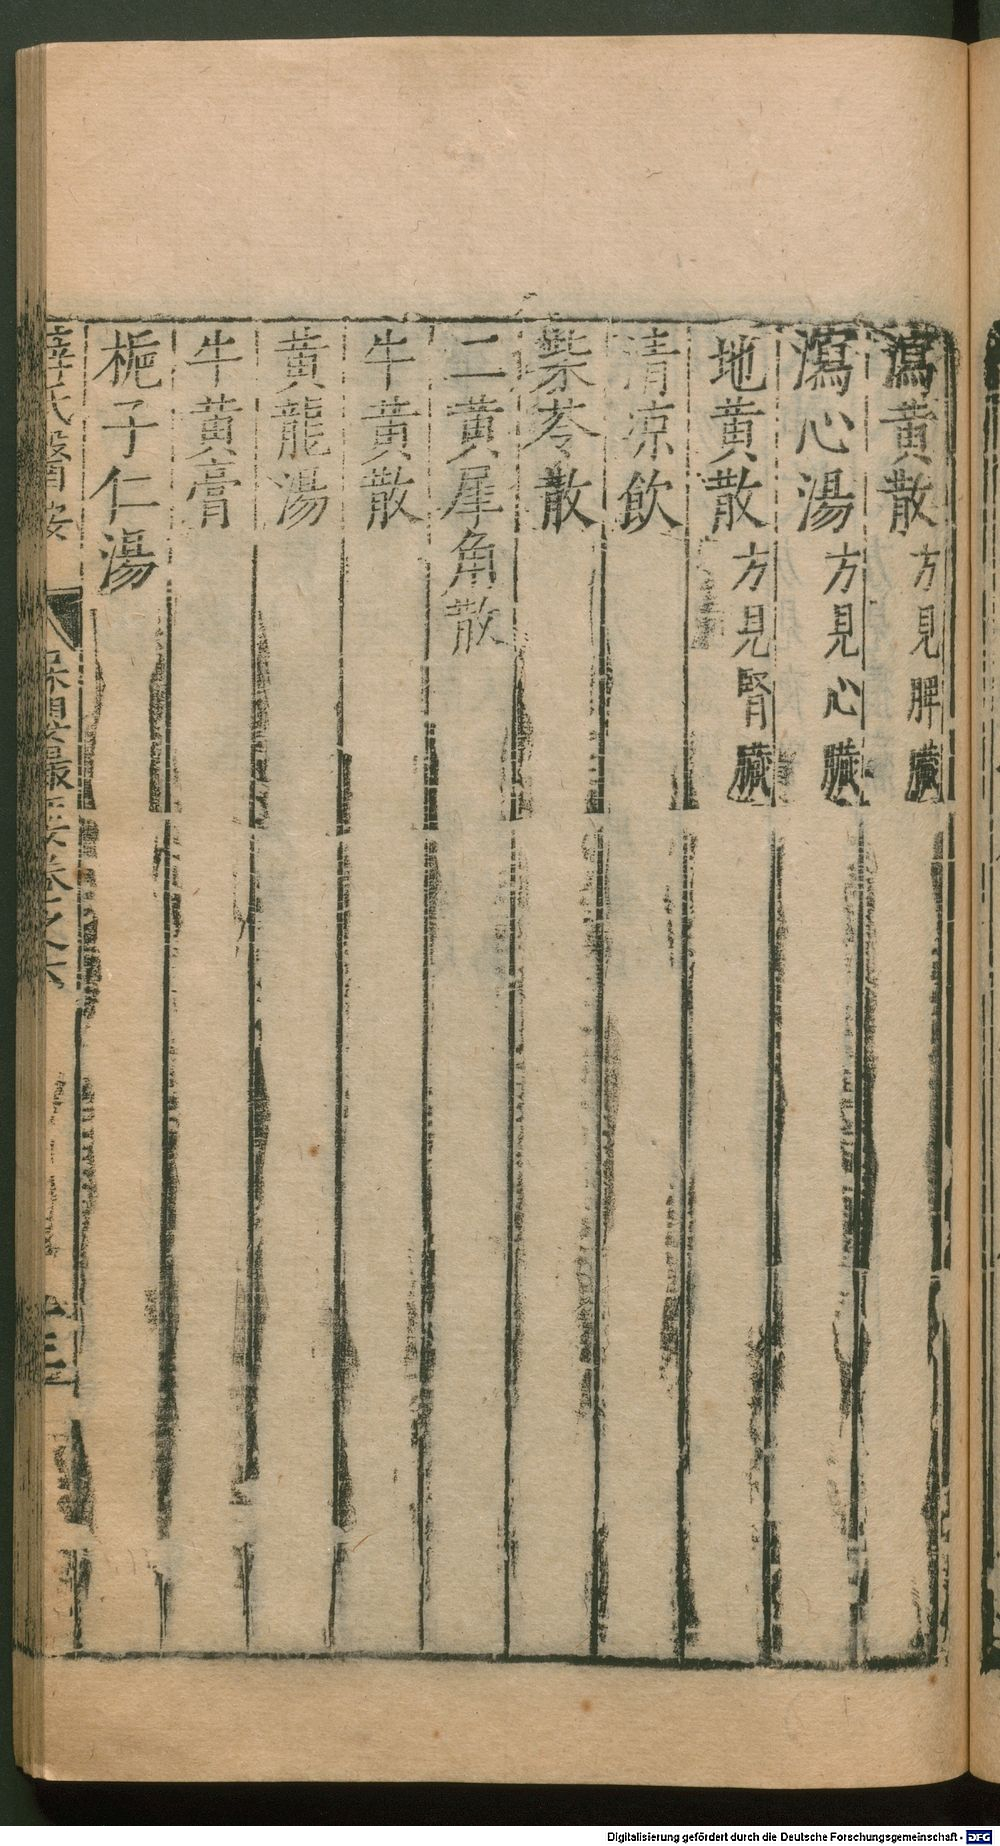 瀉黃散方見脾臟
瀉心湯方見心臟
地黃散方見腎臟
清涼飲
柴苓散
二黃犀角散
牛黃散
黃龍湯
牛黃膏
梔子仁湯
薛氏醫按 保嬰撮要卷之六
Digitalisierung gefördert durch die Deutsche Forschungsgemeinschaft - DFG